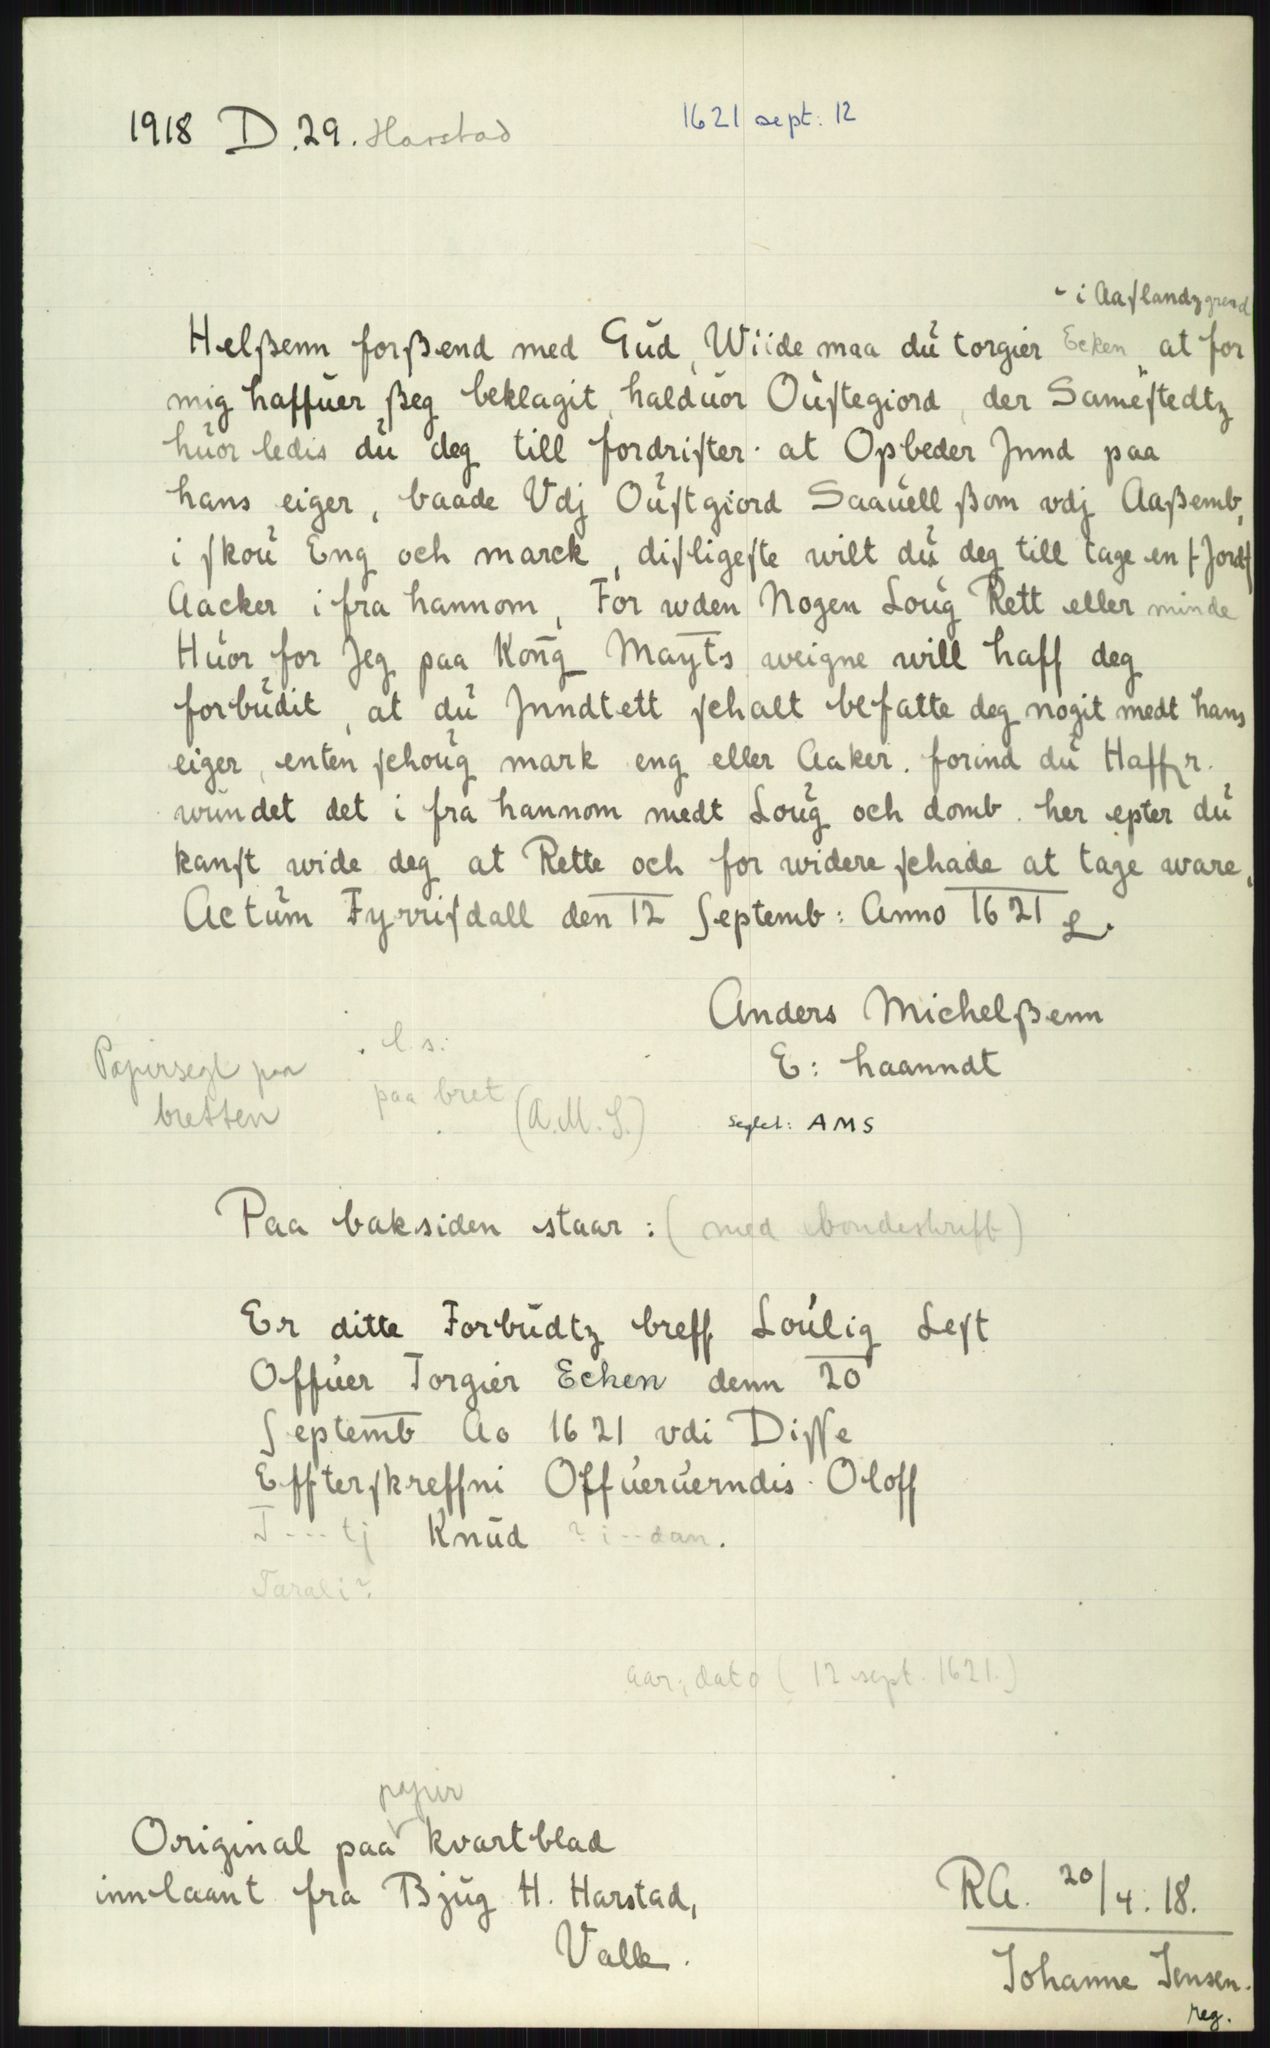 1918 D. 29. Harstad
1621 sept. 12
i Aaslandz grend
Helßenn forßend med Gud, Wiide maa dŭ torgier Ecken at for
mig haffŭer ßeg beklagit, haldŭor Oŭstegiord, der Samestedtz
hŭor ledis dŭ deg till fordrister at Opbeder Jnnd paa
hans eiger, baade Vdj Oŭstgiord Saaŭell ßom vdj Aaßemb,
i skoŭ Eng och marck, disligeste wilt dŭ deg till tage en st Jord
Aacker i fra hannom, For wden Nogen Loŭg Rett eller minde
Hŭor for Jeg paa Kong Mayts weigne will haff deg
forbŭdit, at dŭ Jnndtett schalt befatte deg nogit medt hans
eiger, enten schoŭg mark eng eller Aaker. forind dŭ Haffr.
wŭndet det i fra hannom medt Loŭg och domb. her epter dŭ
kanst wide deg at Rette och for widere schade at tage ware,
Actŭm Fyrrisdall den 12 Septemb: Anno 1621
Anders Michelßenn
E: haanndt
Papirsegl paa
bretten
l. s.
paa bret
(A. M. S.)
Seglet: AMS
Paa baksiden staar: (med bondeskrift)
Er ditte Forbŭdtz breff Loŭlig Lest
Offŭer Torgier Ecken denn 20
Septemb Ao 1621 vdi Disse
Effterskreffni Offŭerŭerndis Oloff
T---tj Knŭd ? i--dan.
Tarali?
aar, dato (12 sept. 1621.)
papir
Original paa kvartblad
innlaant fra Bjug H. Harstad,
Valle.
RA. 20/4. 18.
Johanne Jensen.
reg.